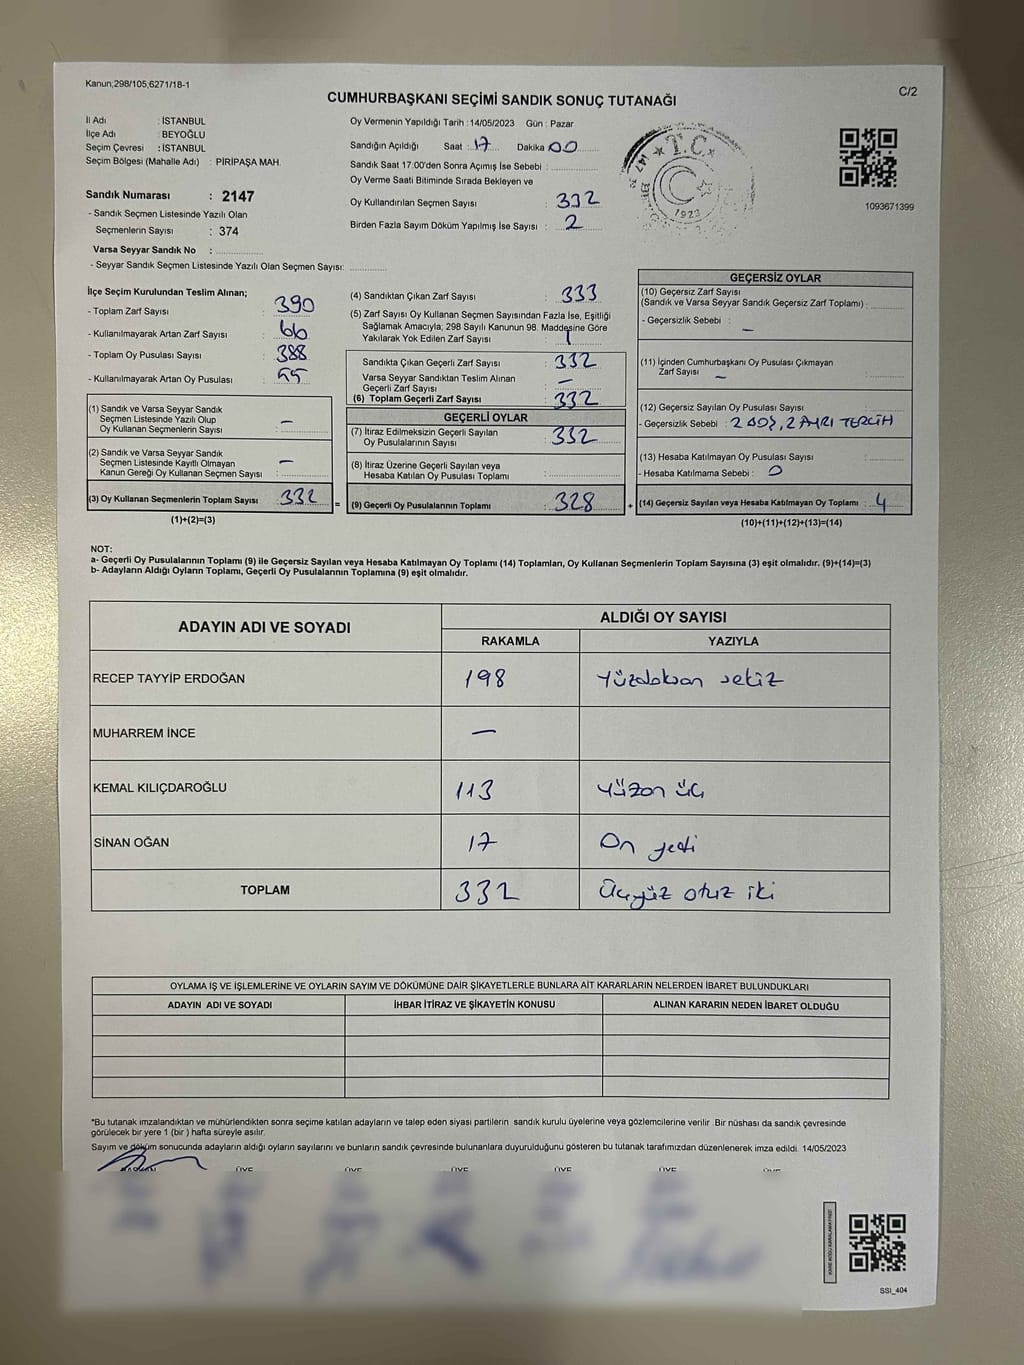 Kanun;298/105,6271/18-1
C/2
CUMHURBAŞKANI SEÇİMİ SANDIK SONUÇ TUTANAĞI
İl Adı : İSTANBUL
İlçe Adı : BEYOĞLU
Seçim Çevresi : İSTANBUL
Seçim Bölgesi (Mahalle Adı) : PİRİPAŞA MAH.
Sandık Numarası : 2147
- Sandık Seçmen Listesinde Yazılı Olan
Seçmenlerin Sayısı : 374
Varsa Seyyar Sandık No :
- Seyyar Sandık Seçmen Listesinde Yazılı Olan Seçmen Sayısı:
Oy Vermenin Yapıldığı Tarih : 14/05/2023 Gün : Pazar
Sandığın Açıldığı Saat : 17 Dakika 00
Sandık Saat 17:00'den Sonra Açımış İse Sebebi :
Oy Verme Saati Bitiminde Sırada Bekleyen ve
Oy Kullandırılan Seçmen Sayısı : 332
Birden Fazla Sayım Döküm Yapılmış İse Sayısı : 2
T.C.
1923
1093671399
İlçe Seçim Kurulundan Teslim Alınan;
- Toplam Zarf Sayısı : 390
- Kullanılmayarak Artan Zarf Sayısı : 60
- Toplam Oy Pusulası Sayısı : 388
- Kullanılmayarak Artan Oy Pusulası : 55
(1) Sandık ve Varsa Seyyar Sandık
Seçmen Listesinde Yazılı Olup
Oy Kullanan Seçmenlerin Sayısı : —
(2) Sandık ve Varsa Seyyar Sandık
Seçmen Listesinde Kayıtlı Olmayan
Kanun Gereği Oy Kullanan Seçmen Sayısı : —
(3) Oy Kullanan Seçmenlerin Toplam Sayısı : 332
(1)+(2)=(3)
(4) Sandıktan Çıkan Zarf Sayısı : 333
(5) Zarf Sayısı Oy Kullanan Seçmen Sayısından Fazla İse, Eşitliği
Sağlamak Amacıyla; 298 Sayılı Kanunun 98. Maddesine Göre
Yakılarak Yok Edilen Zarf Sayısı : 1
Sandıkta Çıkan Geçerli Zarf Sayısı : 332
Varsa Seyyar Sandıktan Teslim Alınan
Geçerli Zarf Sayısı : —
(6) Toplam Geçerli Zarf Sayısı : 332
GEÇERLİ OYLAR
(7) İtiraz Edilmeksizin Geçerli Sayılan
Oy Pusulalarının Sayısı : 332
(8) İtiraz Üzerine Geçerli Sayılan veya
Hesaba Katılan Oy Pusulası Toplamı :
= (9) Geçerli Oy Pusulalarının Toplamı : 328 +
GEÇERSİZ OYLAR
(10) Geçersiz Zarf Sayısı
(Sandık ve Varsa Seyyar Sandık Geçersiz Zarf Toplamı) :
- Geçersizlik Sebebi : —
(11) İçinden Cumhurbaşkanı Oy Pusulası Çıkmayan
Zarf Sayısı — :
(12) Geçersiz Sayılan Oy Pusulası Sayısı :
- Geçersizlik Sebebi : 2 BOŞ, 2 AYRI TERCİH
(13) Hesaba Katılmayan Oy Pusulası Sayısı :
- Hesaba Katılmama Sebebi : 0
(14) Geçersiz Sayılan veya Hesaba Katılmayan Oy Toplamı : 4
(10)+(11)+(12)+(13)=(14)
NOT:
a- Geçerli Oy Pusulalarının Toplamı (9) ile Geçersiz Sayılan veya Hesaba Katılmayan Oy Toplamı (14) Toplamları, Oy Kullanan Seçmenlerin Toplam Sayısına (3) eşit olmalıdır. (9)+(14)=(3)
b- Adayların Aldığı Oyların Toplamı, Geçerli Oy Pusulalarının Toplamına (9) eşit olmalıdır.
ADAYIN ADI VE SOYADI
ALDIĞI OY SAYISI
RAKAMLA YAZIYLA
RECEP TAYYİP ERDOĞAN 198 Yüzdoksan sekiz
MUHARREM İNCE —
KEMAL KILIÇDAROĞLU 113 Yüzon üç
SİNAN OĞAN 17 On yedi
TOPLAM 332 Üçyüz otuz iki
OYLAMA İŞ VE İŞLEMLERİNE VE OYLARIN SAYIM VE DÖKÜMÜNE DAİR ŞİKAYETLERLE BUNLARA AİT KARARLARIN NELERDEN İBARET BULUNDUKLARI
ADAYIN ADI VE SOYADI İHBAR İTİRAZ VE ŞİKAYETİN KONUSU ALINAN KARARIN NEDEN İBARET OLDUĞU
*Bu tutanak imzalandıktan ve mühürlendikten sonra seçime katılan adayların ve talep eden siyasi partilerin sandık kurulu üyelerine veya gözlemcilerine verilir. Bir nüshası da sandık çevresinde
görülecek bir yere 1 (bir ) hafta süreyle asılır.
Sayım ve döküm sonucunda adayların aldığı oyların sayılarını ve bunların sandık çevresinde bulunanlara duyurulduğunu gösteren bu tutanak tarafımızdan düzenlenerek imza edildi. 14/05/2023
BAŞKAN ÜYE ÜYE ÜYE ÜYE ÜYE ÜYE
SSI_404